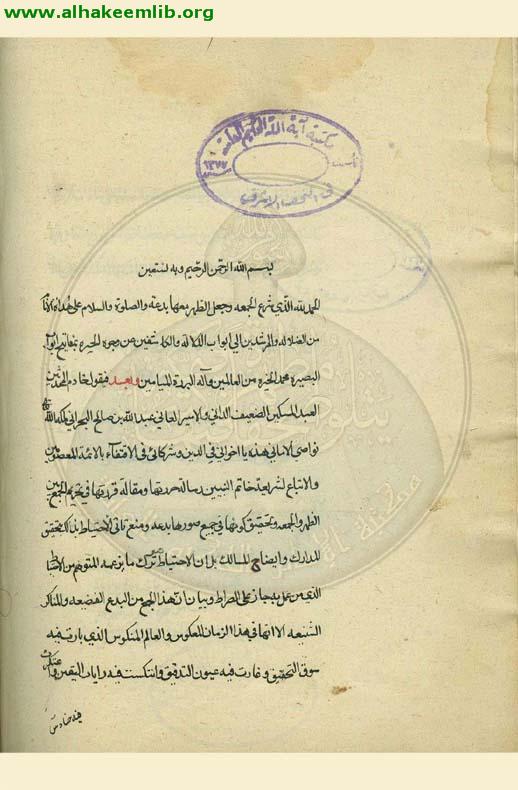 www.alhakeemlib.org
مكتبة آية الله الحكيم العامة
١٣٧٧
في النجف الاشرف
بسم الله الرحمن الرحيم وبه نستعين
الحمد لله الذي شرع الجمعه وجعل الظهر معها بدعه والصلوة والسلام على هداة الانام
من الضلاله والمرشدين الى ابواب الدلاله والكاشفين عن وجوه الحيره بمفاتيح ابواب
البصيره محمد الخيره من العالمين وآله البررة الميامين وبعد فيقول خادم المحدثين
العبد المسكين الضعيف الداني والاسير العاني عبد الله بن صالح البحراني ملكه الله
نواصي الاماني هذه يا اخواني في الدين وشركائي في الاقتفاء بالائمة المعصومين
والاتباع لشريعة خاتم النبيين رسالة حررتها ومقالة قررتها في تحريم الجمع بين
الظهر والجمعه وتحقيق كونها في جميع صورها بدعه ومنع تأتي الاحتياط بذلك تحقيق
للمدارك وايضاح للمسالك بل ان الاحتياط ترك ما يزعمه المتوهم من الاحتياط
الذي من عمل به جاز على الصراط وبيان ان هذا الجمع من البدع الفضيعه والمناكر
الشنيعه الا انها في هذا الزمان المعكوس والعالم المنكوس الذي بارت فيه
سوق التحقيق وغارت فيه عيون التدقيق وانتكست فيه رايات اليقين
فيه حنادس